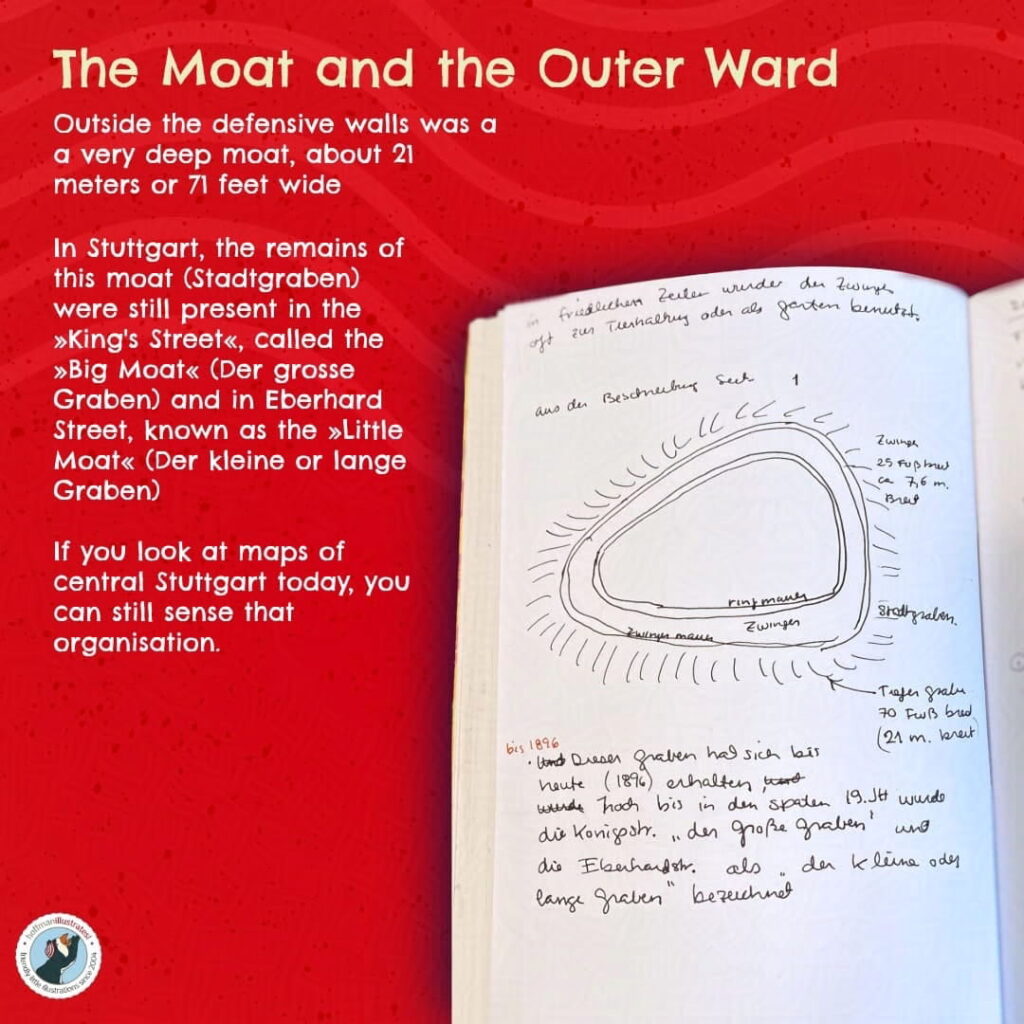 The Moat and the Outer Ward
Outside the defensive walls was a
a very deep moat, about 21
meters or 71 feet wide
In Stuttgart, the remains of
this moat (Stadtgraben)
were still present in the
»King's Street«, called the
»Big Moat« (Der grosse
Graben) and in Eberhard
Street, known as the »Little
Moat« (Der kleine or lange
Graben)
If you look at maps of
central Stuttgart today, you
can still sense that
organisation.
in friedlichen Zeiten wurde der Zwinger
oft zur Tierhaltung oder als garten benutzt.
aus der Beschreibung 1
Zwinger
25 Fuß breit
ca 7,6 m.
Breit
ringmauer
Zwinger
Zwinger mauer
Stadtgraben
Tiefer graben
70 Fuß breit
(21 m. breit)
bis 1896
Dieser graben hat sich bis
heute (1896) erhalten
noch bis in den späten 19. JH wurde
die Königstr. „der große graben" und
die Eberhardstr. als „der kleine oder
lange graben" bezeichnet
hoffmanillustrates!
friendly little illustrations since 2004